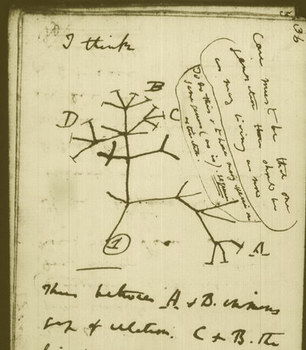 I think
36
B
C
D
A
1
Case must be that one
generation then should be
as many living as now
To do this & to have many species in
same genus (as is) requires
extinction
Thus between A & B. immens
gap of relation. C & B. the